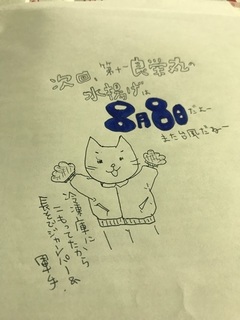 次回、第十一良栄丸の
水揚げは
8月8日だよー
また台風だねー
冷凍上庫に、から
こもってたから
長そでジャンパー&
軍手